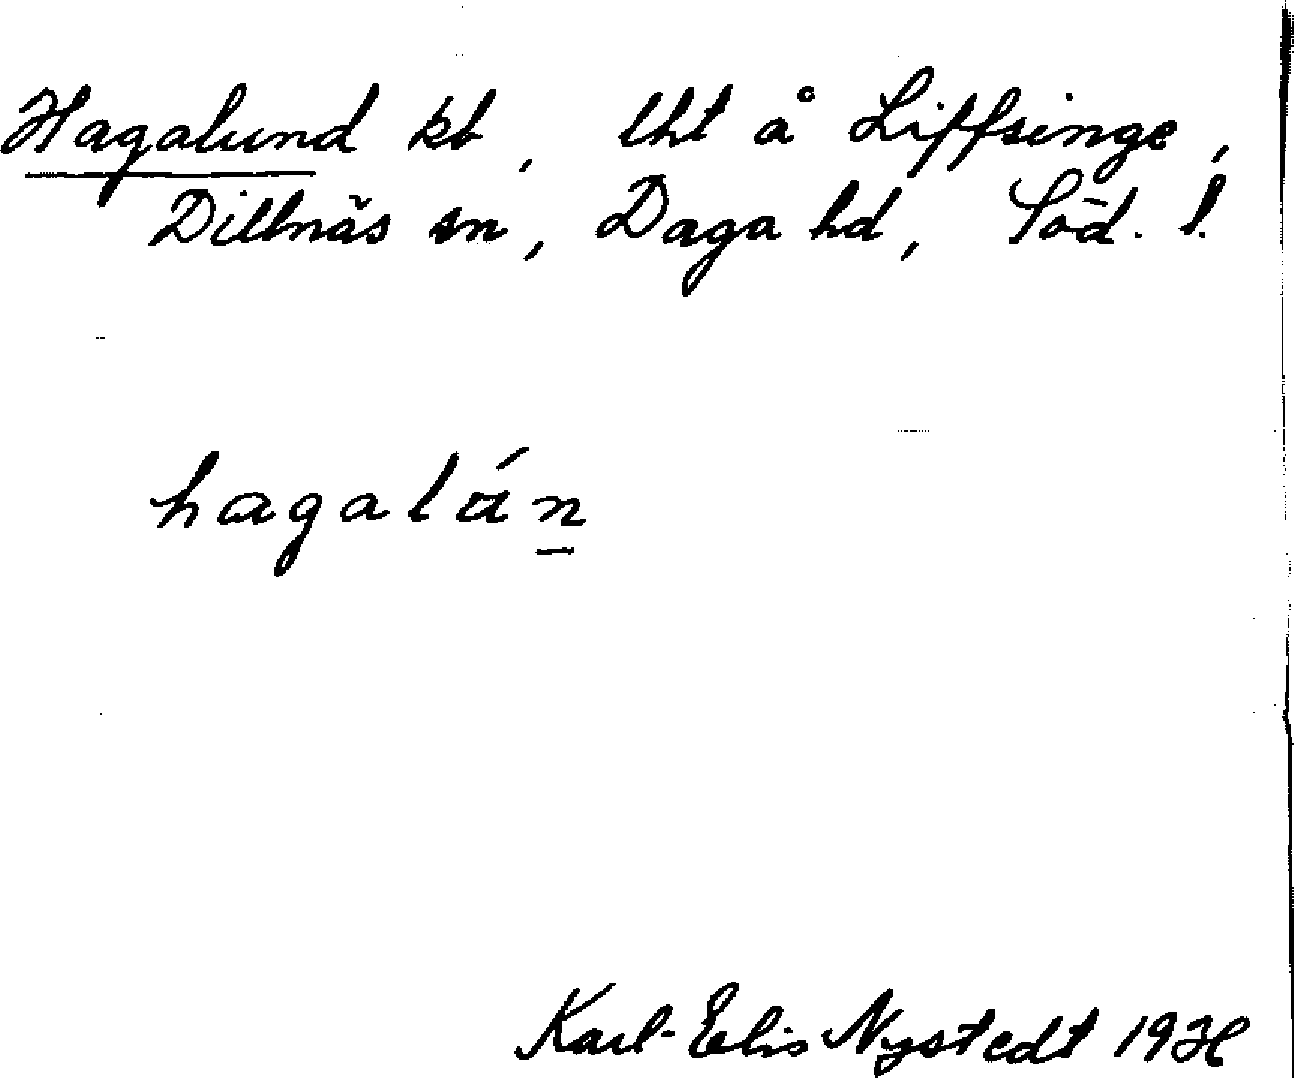 Hagalund kt, lht å Liffsinge,
Dillnäs sn, Daga hd, Söd. l.
hagalán
Karl-Elis Nystedt